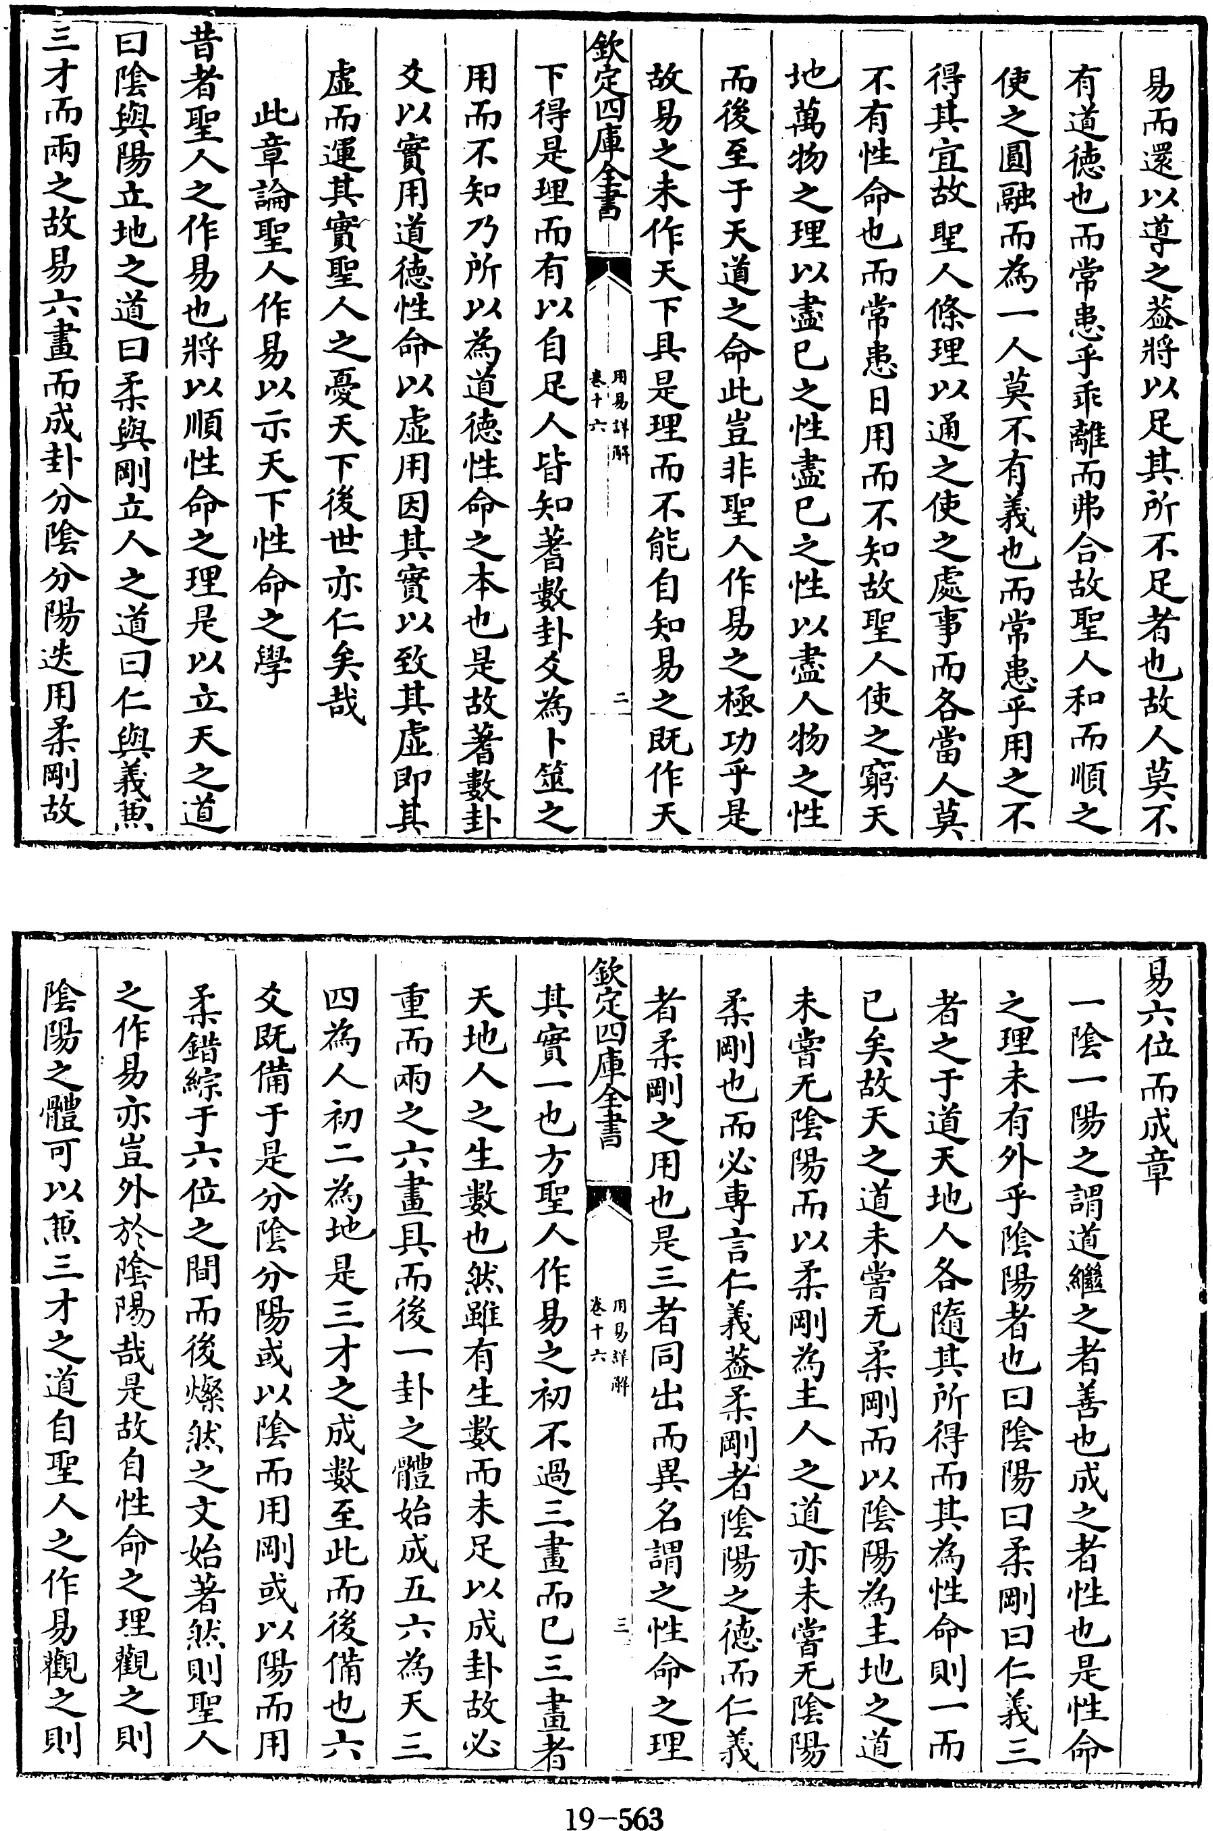 易而還以導之葢將以足其所不足者也故人莫不
有道徳也而常患乎乖離而弗合故聖人和而順之
使之圓融而為一人莫不有義也而常患乎用之不
得其宜故聖人條理以通之使之處事而各當人莫
不有性命也而常患日用而不知故聖人使之窮天
地萬物之理以盡已之性盡已之性以盡人物之性
而後至于天道之命此豈非聖人作易之極功乎是
故易之未作天下具是理而不能自知易之既作天
欽定四庫全書
用易詳解
卷十六
二
下得是理而有以自足人皆知蓍數卦爻為卜筮之
用而不知乃所以為道徳性命之本也是故蓍數卦
爻以實用道徳性命以虚用因其實以致其虚即其
虚而運其實聖人之憂天下後世亦仁矣哉
此章論聖人作易以示天下性命之學
昔者聖人之作易也將以順性命之理是以立天之道
曰陰與陽立地之道曰柔與剛立人之道曰仁與義兼
三才而兩之故易六畫而成卦分陰分陽迭用柔剛故
易六位而成章
一陰一陽之謂道繼之者善也成之者性也是性命
之理未有外乎陰陽者也曰陰陽曰柔剛曰仁義三
者之于道天地人各隨其所得而其為性命則一而
已矣故天之道未嘗无柔剛而以陰陽為主地之道
未嘗无陰陽而以柔剛為主人之道亦未嘗无陰陽
柔剛也而必專言仁義葢柔剛者陰陽之徳而仁義
者柔剛之用也是三者同出而異名謂之性命之理
欽定四庫全書
用易詳解
卷十六
三
其實一也方聖人作易之初不過三畫而已三畫者
天地人之生數也然雖有生數而未足以成卦故必
重而兩之六畫具而後一卦之體始成五六為天三
四為人初二為地是三才之成數至此而後備也六
爻既備于是分陰分陽或以陰而用剛或以陽而用
柔錯綜于六位之間而後燦然之文始著然則聖人
之作易亦豈外於陰陽哉是故自性命之理觀之則
陰陽之體可以兼三才之道自聖人之作易觀之則
19-563